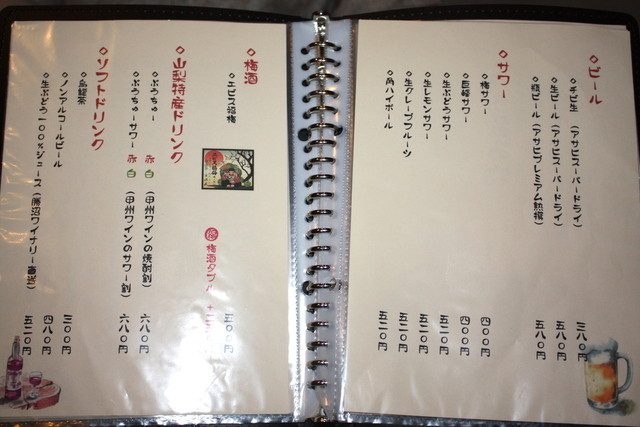 ◇ビール
◇チビ生 （アサヒスーパードライ） 三八〇円
◇生ビール （アサヒスーパードライ） 五八〇円
◇瓶ビール （アサヒプレミアム熟撰） 五八〇円
◇サワー
◇梅サワー 四〇〇円
◇巨峰サワー 四〇〇円
◇生ぶどうサワー 五二〇円
◇生レモンサワー 五二〇円
◇生グレープフルーツ 五二〇円
◇角ハイボール 五二〇円
◇梅酒
◇エビス福梅 五〇〇円
梅酒ダブル
◇山梨特産ドリンク
◇ぶうちゅー 赤 白 （甲州ワインの焼酎割） 六八〇円
◇ぶうちゅーサワー 赤 白 （甲州ワインのサワー割） 六八〇円
◇ソフトドリンク
◇烏龍茶 三〇〇円
◇ノンアルコールビール 四八〇円
◇生ぶどう一〇〇％ジュース （勝沼ワイナリー直送） 五二〇円